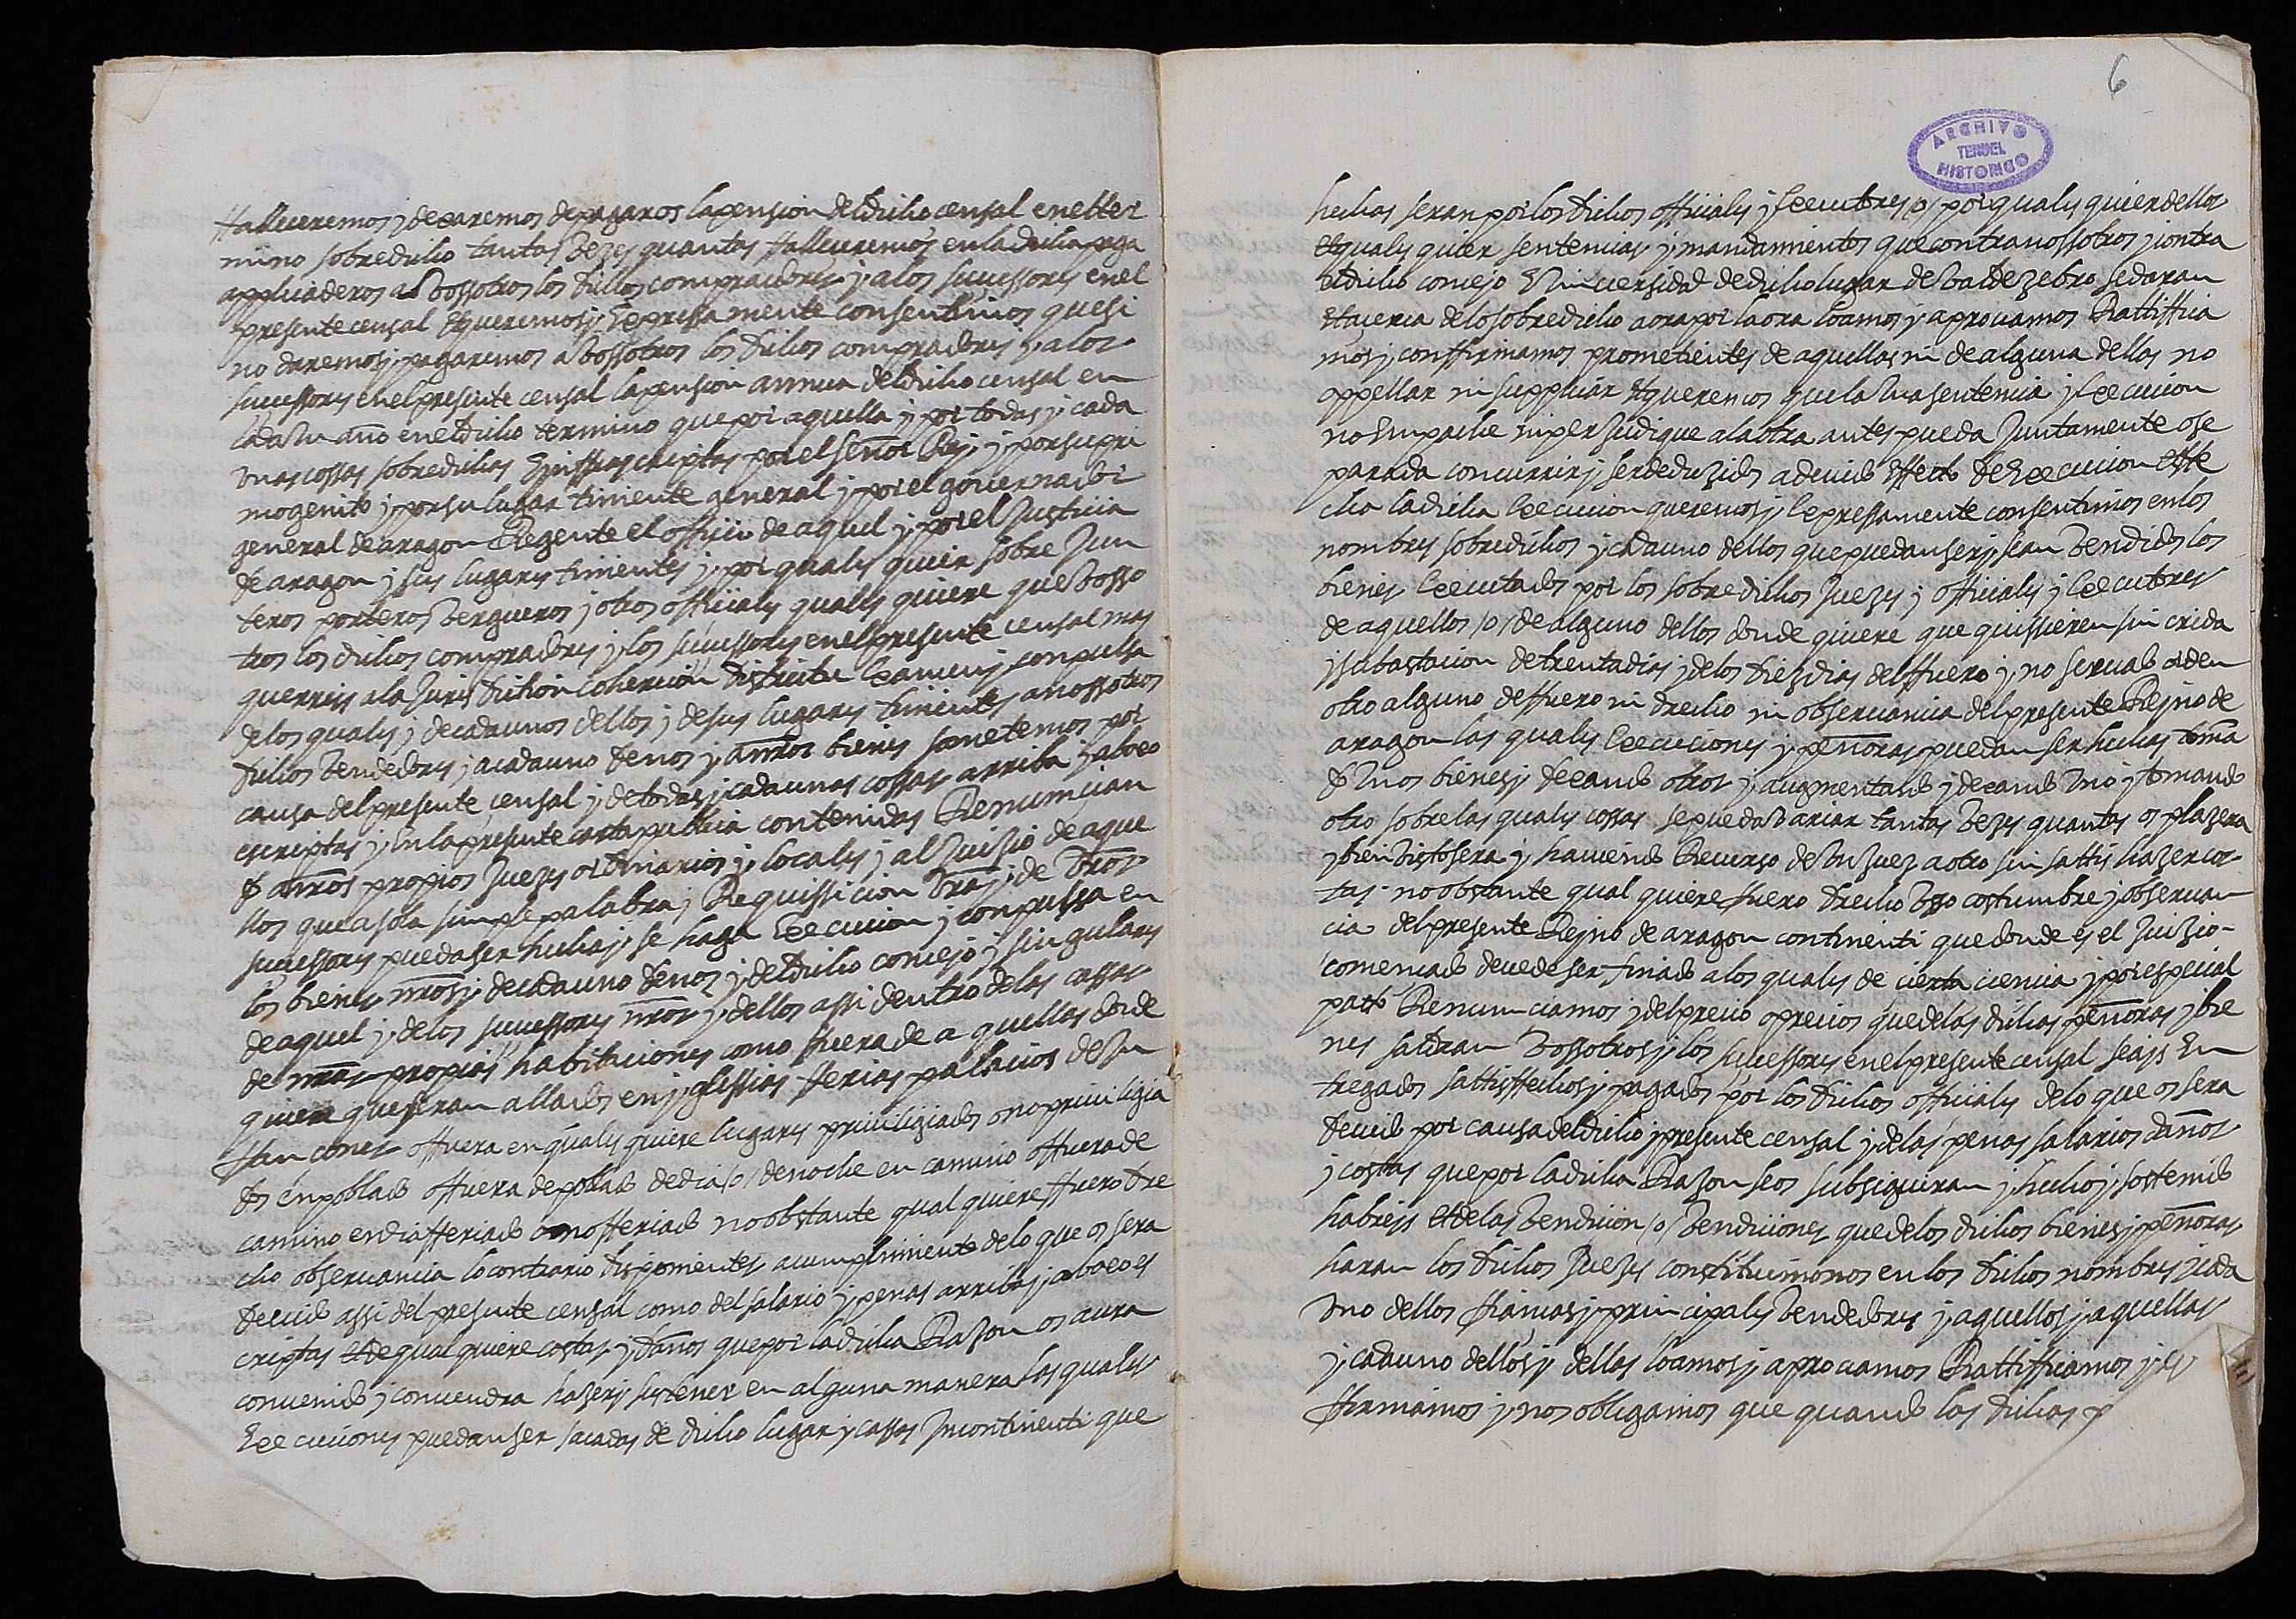 ffalleceremos y dexaremos de pagaros la pension del dicho censal en el ter
mino sobredicho tantas vezes quantas ffalleceremos en la dicha paga
applicaderos a vossotros los dichos compradores y a los successores en el
presente censal Et queremos y Expressamente consentimos que si
no daremos y pagaremos a vossotros los dichos compradores y a los
successores en el presente censal la pension annua del dicho censal en
cada un año en el dicho termino que por aquella y por todas y cada
unas cossas sobredichas E inffrascriptas por el señor Rey y por su pri
mogenito y por su lugar tiniente general y por el governador
general de aragon Regente el officio de aquel y por el Justicia
de aragon y sus lugares tinientes y por quales quier sobre Jun
teros porteros vergueros y otros officiales quales quiere que vosso
tros los dichos compradores y los successores en el presente censal mas
querreis a la Jurisdiction cohercion districtu examen y conpulsa
de los quales y de cada unos dellos y de sus lugares tinientes a nossotros
dichos vendedores y a cada uno de nos y a nros bienes sometemos por
causa del presente censal y de todas y cada unas cossas arriba y aboxo
escriptas y En la presente carta publica contenidas Renuncian
do a nros propios Juezes ordinarios y locales y al Juizio de aque
llos que a sola simple palabra y Requissicion vra y de vros
successores pueda ser hecha y se haga Execucion y conpulssa en
los bienes nros y de cada uno de nos y del dicho concejo y singulares
de aquel y de los successores nros y dellos assi dentro de las cassas
de nras propias habitaciones como ffuera de aquellas donde
quiera que seran allados en yglessias fferias palacios de In
ffancones o ffuera en quales quiere lugares privilegiados o no privilegia
dos en poblado o ffuera de poblado de dia /o/ de noche en camino o ffuera de
camino en dia fferiado o no fferiado no obstante qual quiere ffuero dre
cho observancia lo contrario disponientes a cumplimiento de lo que os sera
devido assi del presente censal como del salario y penas arriba y aboxo es
criptas Et de qual quiere costas y daños que por la dicha Razon os aura
convenido y convendra hazer y sustener en alguna manera las quales
Execuciones puedan ser sacadas de dicho lugar y cassas Incontinenti que
6
ARCHIVO
TERUEL
HISTORICO
hechas seran por los dichos officiales y Executores /o/ por quales quier dellos
Et quales quier sentencias y mandamientos que contra nossotros y contra
el dicho concejo Universidad de dicho lugar de valdezebro se daran
Et acerca de lo sobredicho aora por la ora loamos y aprovamos Rattiffica
mos y conffirmamos prometientes de aquellas ni de alguna dellas no
appellar ni supplicar Et queremos que la una sentencia y Execucion
no Enpache ni perJudique a la otra antes pueda Juntamente o se
parada concurrir y ser deduzidas a devido Effecto de Execucion Esse
cha la dicha Execucion queremos y Expressamente consentimos en los
nombres sobredichos y cada uno dellos que puedan ser y sean vendidos los
bienes Executados por los sobredichos Juezes y officiales y Executores
de aquellos /o/ de alguno dellos donde quiere que quissieren sin crida
y subastacion de trenta dias y de los diez dias del ffuero y no servado orden
otro alguno de ffuero ni drecho ni observancia del presente Reyno de
aragon las quales Execuciones y peñoras puedan ser hechas toma
do unos bienes y dexando otros y augmentando y dexando uno y tomando
otro sobre las quales cossas se pueda variar tantas vezes quantas os plazera
y bien visto sera y haviendo Recurso de un Juez a otro sin sattishazer cos
tas no obstante qual quiere ffuero drecho usso costumbre y observan
cia del presente Reyno de aragon continenti que donde es el Juizio
comencado deve de ser finado a los quales de cierta ciencia y por especial
pacto Renunciamos y del precio o precios que de las dichas peñoras y bie
nes saldran vossotros y los successores en el presente censal seays En
tregados sattisffechos y pagados por los dichos officiales de lo que os sera
devido por causa del dicho y presente censal y de las penas salarios daños
y costas que por la dicha Razon se os subsiguiran y hecho y sostenido
habreys Et de las vendicion /o/ vendiciones que de los dichos bienes y peñoras
haran los dichos Juezes constituimonos en los dichos nombres y cada
uno dellos ffiancas y principales vendedores y aquellos y aquellas
y cada uno dellos y dellas loamos y aprovamos Rattifficamos y
ffirmamos y nos obligamos que quando las dichas